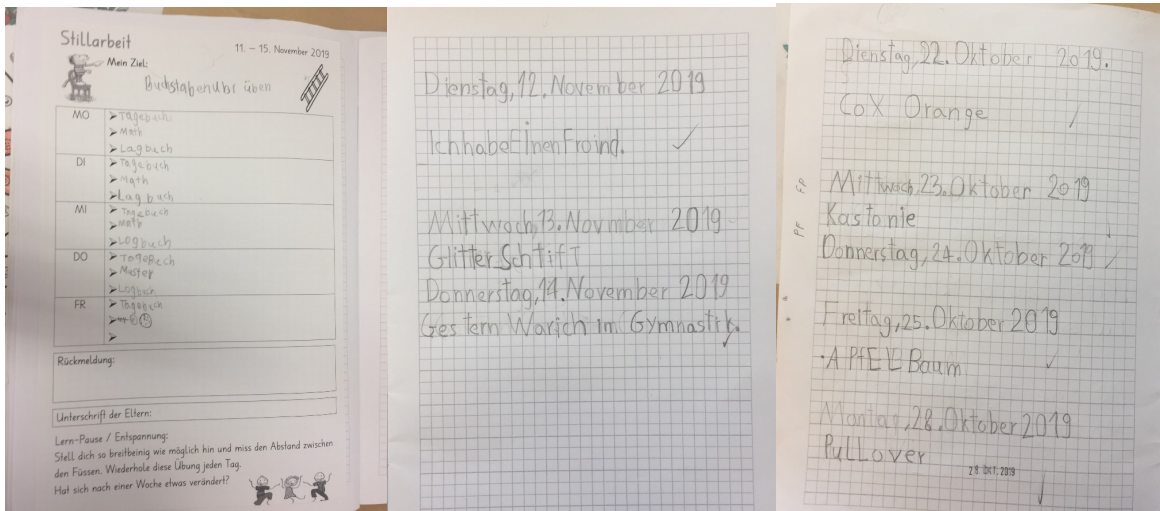 Stillarbeit
11. – 15. November 2019
Mein Ziel:
Buchstabenübr üben
MO
➤Tagebuch
➤Math
➤Lagbuch
DI
➤Tagebuch
➤Math
➤Lagbuch
MI
➤Tagebuch
➤Math
➤Logbuch
DO
➤TogeBech
➤Muster
➤Logbuch
FR
➤Tagebuch
➤
➤
Rückmeldung:
Unterschrift der Eltern:
Lern-Pause / Entspannung:
Stell dich so breitbeinig wie möglich hin und miss den Abstand zwischen
den Füssen. Wiederhole diese Übung jeden Tag.
Hat sich nach einer Woche etwas verändert?
Dienstag,12.November 2019
IchhabeEinenFroind.
Mittwoch,13.November 2019
Glitter SchtifT
Donnerstag,14.November 2019
Gestern Warich im Gymnastik.
Dienstag,22.Oktober 2019.
CoX Orange
Mittwoch,23.Oktober 2019
Kastonie
Donnerstag,24.Oktober 2019
Freitag,25.Oktober 2019
APfEL Baum
Montag,28.Oktober 2019
PuLLover
28. OKT. 2019